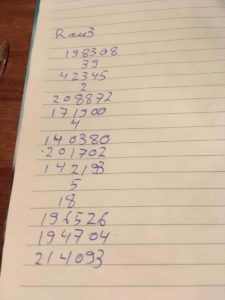 Rau3
198308
39
42345
2
208872
171900
4
140380
201702
142193
5
18
196526
194704
214093